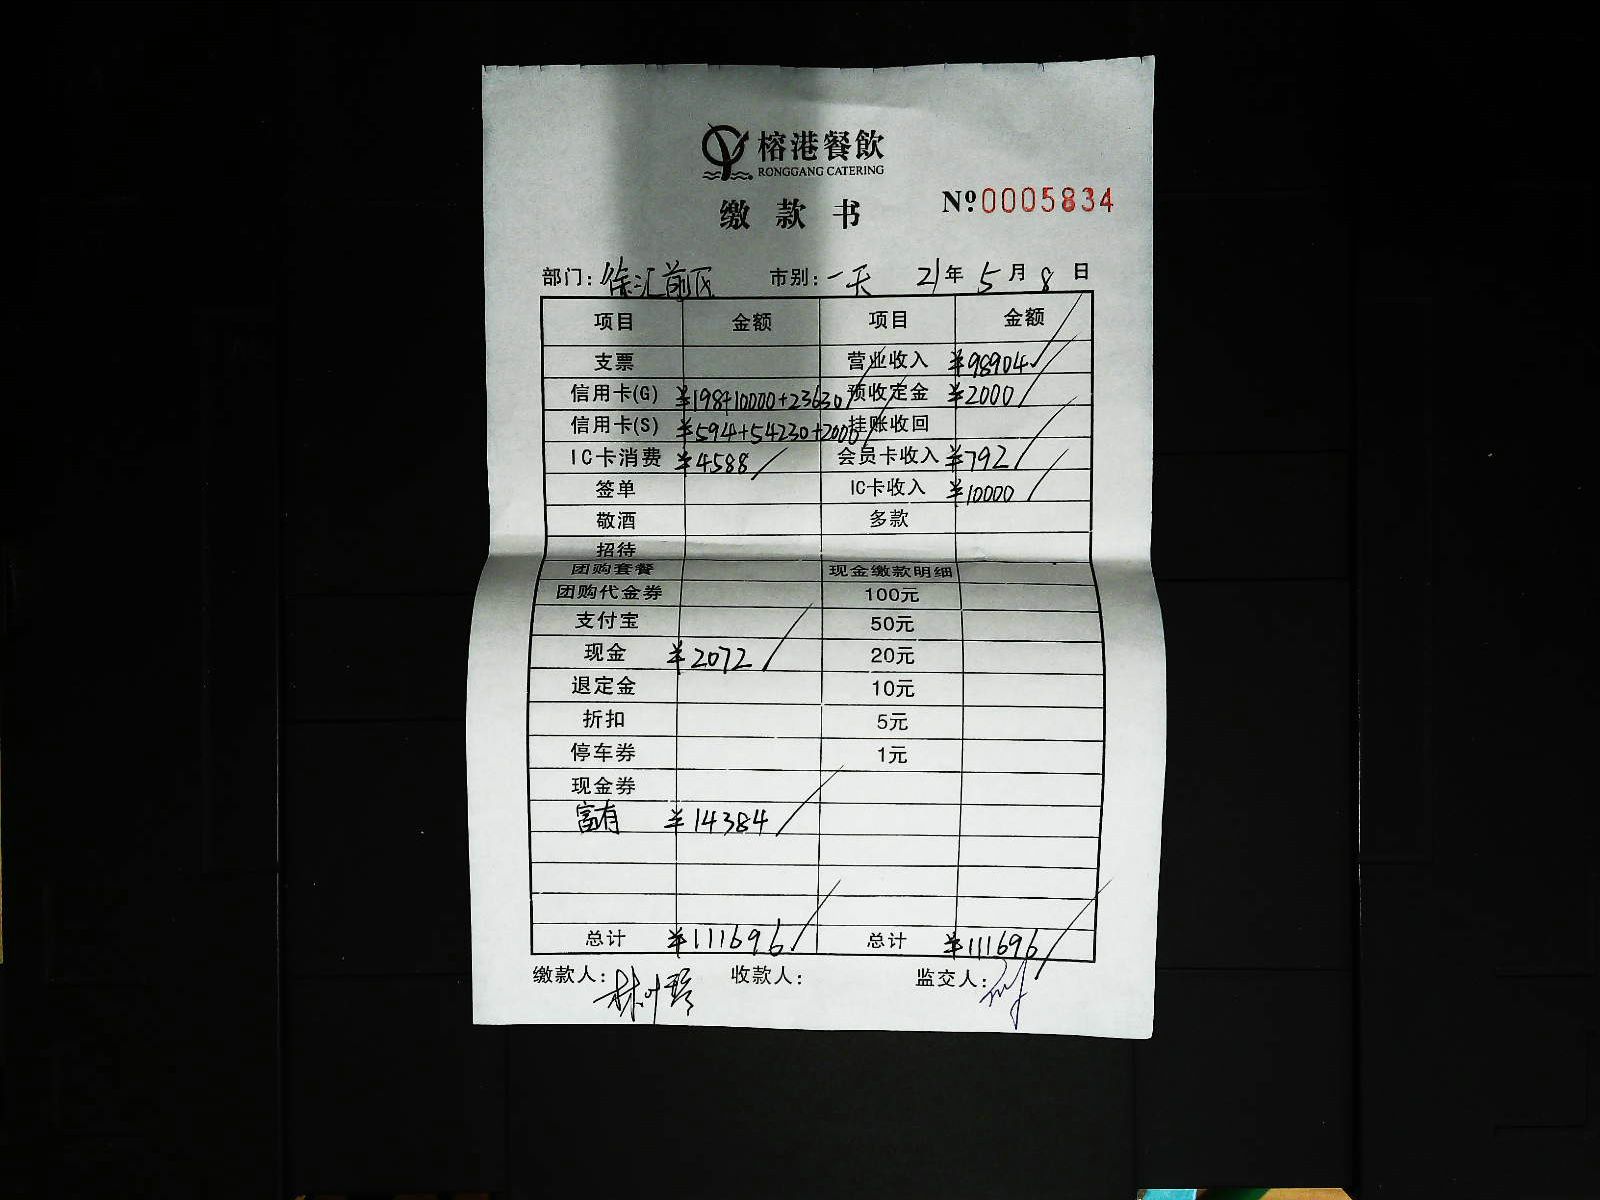 榕港餐飲
RONGGANG CATERING
缴款书
Nº0005834
部门：徐汇前厅 市别：一天 21年5月8日
项目 金额 项目 金额
支票 营业收入 ¥98904
信用卡(G) ¥198+10000+23630 预收定金 ¥2000
信用卡(S) ¥594+54230+2000 挂账收回
IC卡消费 ¥4588 会员卡收入 ¥792
签单 IC卡收入 ¥10000
敬酒 多款
招待
团购套餐 现金缴款明细
团购代金券 100元
支付宝 50元
现金 ¥2072 20元
退定金 10元
折扣 5元
停车券 1元
现金券
富有 ¥14384
总计 ¥111696 总计 ¥111696
缴款人： 收款人： 监交人：